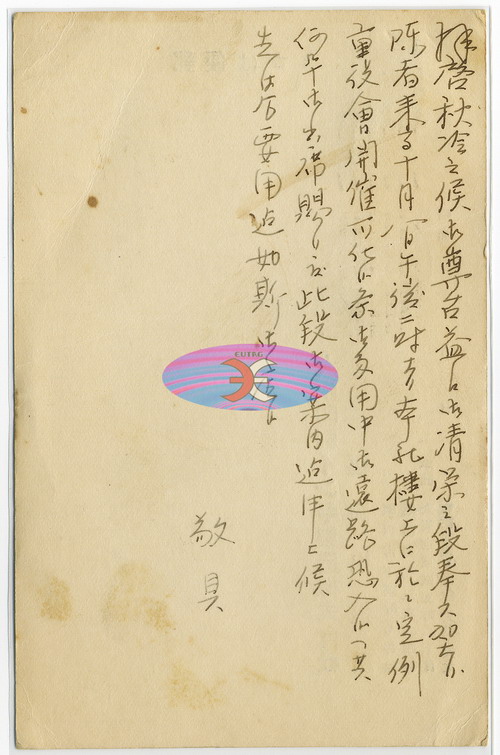 拝啓秋冷之候御尊台益々御清栄之段奉大賀候
陳者来る十月 日午後二時ヨリ本社樓上に於て定例
重役會開催可仕候条御多用中御遠路恐入候へ共
何卒御出席賜り度此段御案内迄申上候
先は右要用迄如斯御座候
敬具